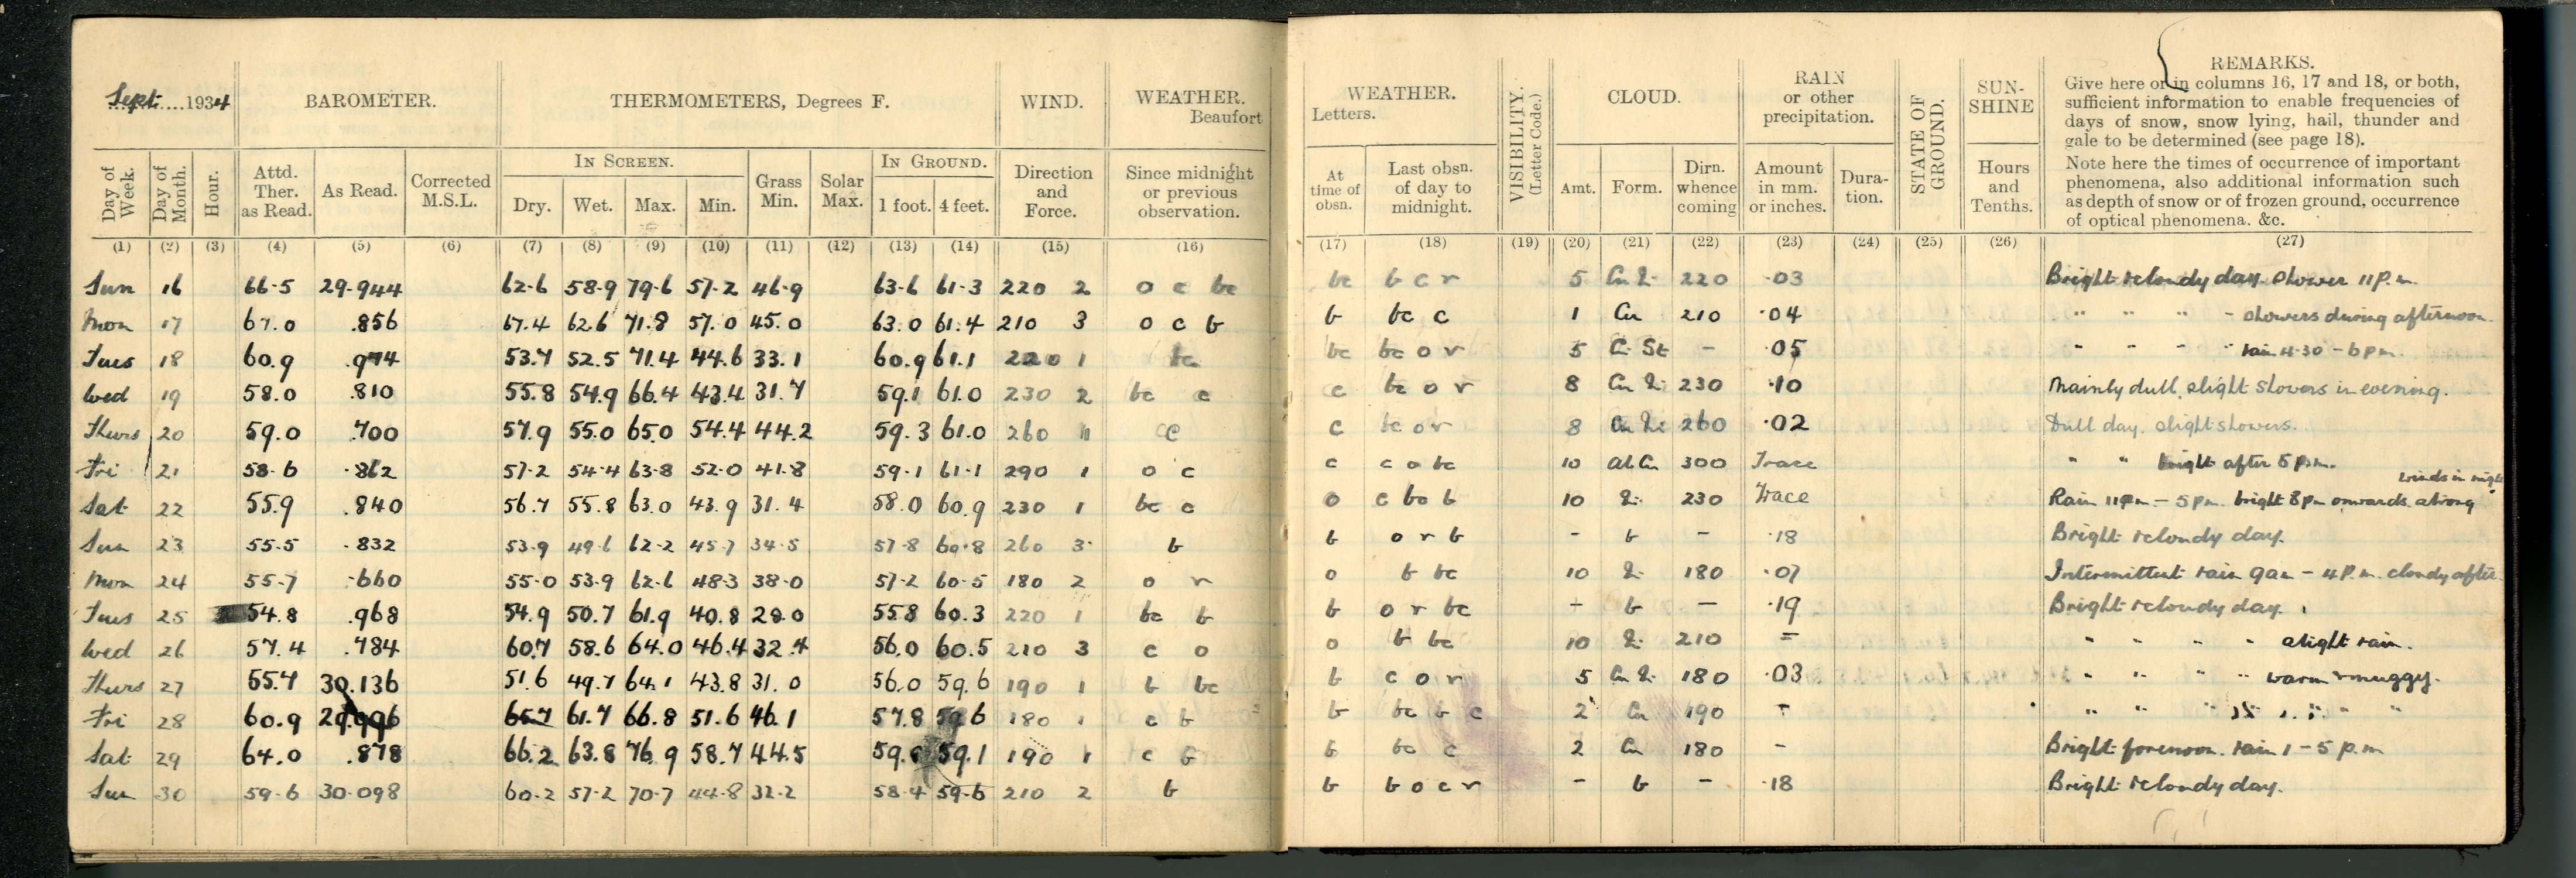 Sept. 1934
BAROMETER.
THERMOMETERS, Degrees F.
WIND.
WEATHER.
Beaufort
Day of Week.
Day of Month.
Hour.
Attd. Ther. as Read.
As Read.
Corrected M.S.L.
IN SCREEN.
Dry. Wet. Max. Min.
Grass Min.
Solar Max.
IN GROUND.
1 foot. 4 feet.
Direction and Force.
Since midnight or previous observation.
(1) (2) (3) (4) (5) (6) (7) (8) (9) (10) (11) (12) (13) (14) (15) (16)
Sun 16 66.5 29.944 62.6 58.9 79.6 57.2 46.9 63.6 61.3 220 2 o c bc
Mon 17 67.0 .856 67.4 62.6 71.8 57.0 45.0 63.0 61.4 210 3 o c b
Tues 18 60.9 .974 53.7 52.5 71.4 44.6 33.1 60.9 61.1 220 1 bc
Wed 19 58.0 .810 55.8 54.9 66.4 43.4 31.7 59.1 61.0 230 2 bc c
Thurs 20 59.0 .700 57.9 55.0 65.0 54.4 44.2 59.3 61.0 260 c
Fri 21 58.6 .862 57.2 54.4 63.8 52.0 41.8 59.1 61.1 290 1 o c
Sat 22 55.9 .840 56.7 55.8 63.0 43.9 31.4 58.0 60.9 230 1 bc c
Sun 23 55.5 .832 53.9 49.6 62.2 45.7 34.5 57.8 60.8 260 3 b
Mon 24 55.7 .660 55.0 53.9 62.6 48.3 38.0 57.2 60.5 180 2 o r
Tues 25 54.8 .968 54.9 50.7 61.9 40.8 28.0 55.8 60.3 220 1 bc b
Wed 26 57.4 .784 60.7 58.6 64.0 46.4 32.4 56.0 60.5 210 3 c o
Thurs 27 55.7 30.136 51.6 49.7 64.1 43.8 31.0 56.0 59.6 190 1 b bc
Fri 28 60.9 29.996 65.7 61.7 66.8 51.6 46.1 57.8 59.6 180 1 c b
Sat 29 64.0 .878 66.2 63.8 76.9 58.7 44.5 59. 59.1 190 1 c b
Sun 30 59.6 30.098 60.2 57.2 70.7 44.8 32.2 58.4 59.6 210 2 b
WEATHER.
Letters.
VISIBILITY. (Letter Code.)
CLOUD.
RAIN
or other
precipitation.
STATE OF GROUND.
SUN-
SHINE
REMARKS.
Give here or in columns 16, 17 and 18, or both,
sufficient information to enable frequencies of
days of snow, snow lying, hail, thunder and
gale to be determined (see page 18).
Note here the times of occurrence of important
phenomena, also additional information such
as depth of snow or of frozen ground, occurrence
of optical phenomena. &c.
At time of obsn.
Last obsn. of day to midnight.
Amt. Form.
Dirn. whence coming
Amount in mm. or inches.
Dura- tion.
Hours and Tenths.
(17) (18) (19) (20) (21) (22) (23) (24) (25) (26) (27)
bc b c r 5 220 .03 Bright & cloudy day. Shower 11 p.m.
b bc c 1 Cu 210 .04 " " " " showers during afternoon.
bc bc o r 5 St - .05 " " " " rain 4.30 - 6 pm.
c bc o r 8 230 .10 Mainly dull, slight showers in evening.
c bc o r 8 260 .02 Dull day. slight showers.
c c o bc 10 Al.Cu 300 Trace " " bright after 5 p.m.
o c bc b 10 230 Trace Rain 11 - 5 pm. bright 8 pm onwards. strong winds in night
b o r b - b - .18 Bright & cloudy day.
o b bc 10 180 .07 Intermittent rain 9am - 4 P.m. cloudy after
b o r bc - b - .19 Bright & cloudy day.
o b bc 10 210 - " " " " slight rain.
b c o r 5 180 .03 " " " " warm & muggy.
b bc b c 2 Cu 190 - " " " " " "
b bc c 2 Cu 180 - Bright forenoon. rain 1 - 5 p.m
b b o c r - b - .18 Bright & cloudy day.